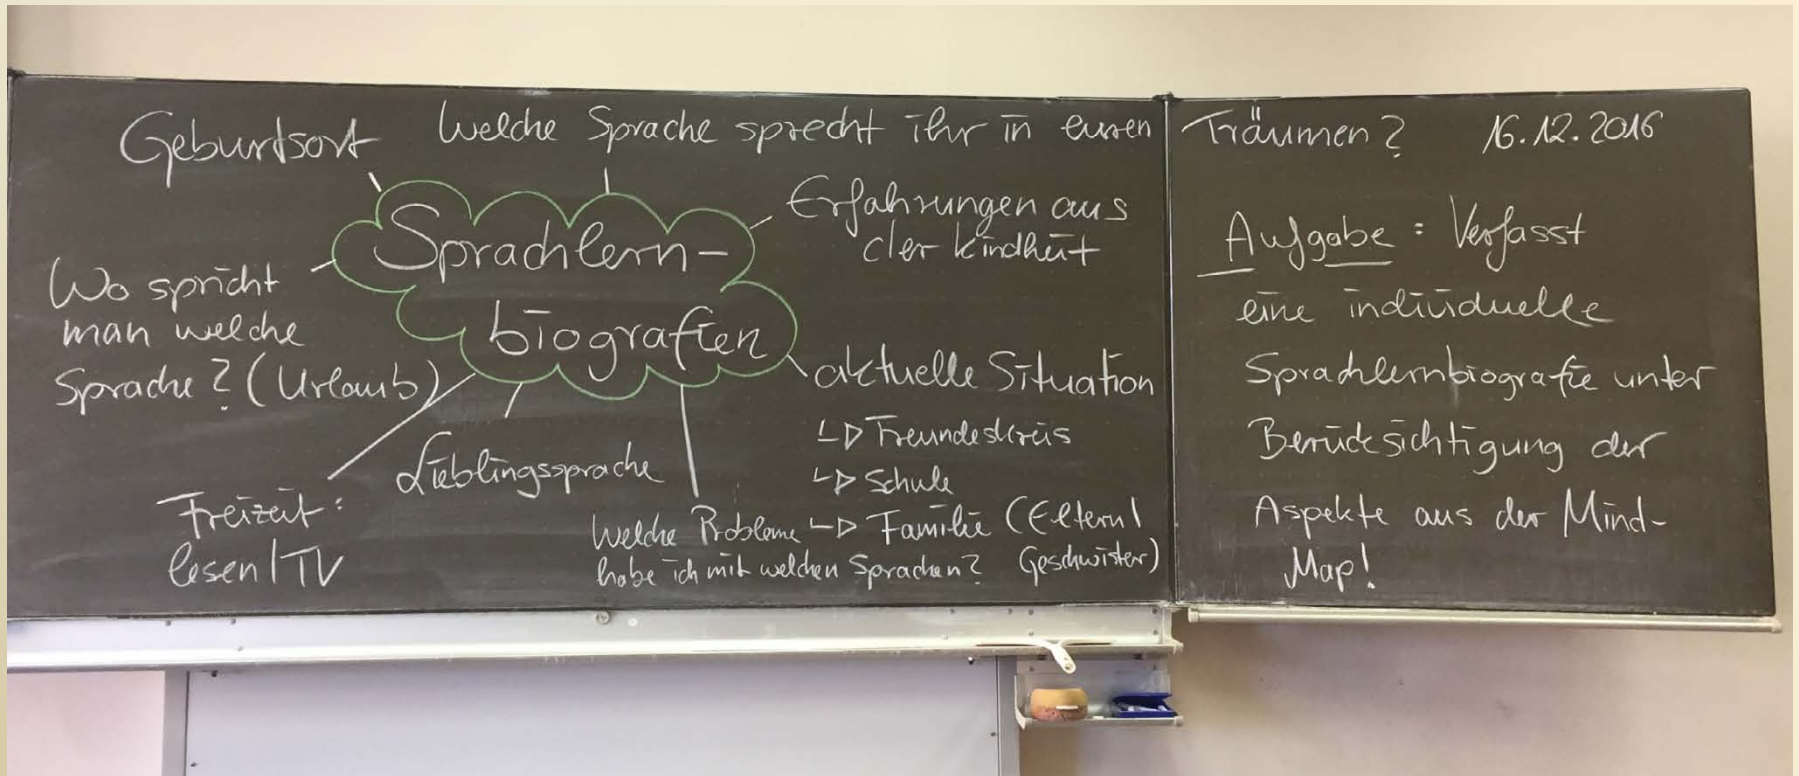 Geburtsort
Welche Sprache sprecht ihr in euren Träumen?
16.12.2016
Sprachlern-
biografien
Erfahrungen aus
der Kindheit
Wo spricht
man welche
Sprache? (Urlaub)
aktuelle Situation
↳ Freundeskreis
↳ Schule
↳ Familie (Eltern/
Geschwister)
Lieblingssprache
Freizeit:
lesen/TV
Welche Probleme
habe ich mit welchen Sprachen?
Aufgabe: Verfasst
eine individuelle
Sprachlernbiografie unter
Berücksichtigung der
Aspekte aus der Mind-
Map!